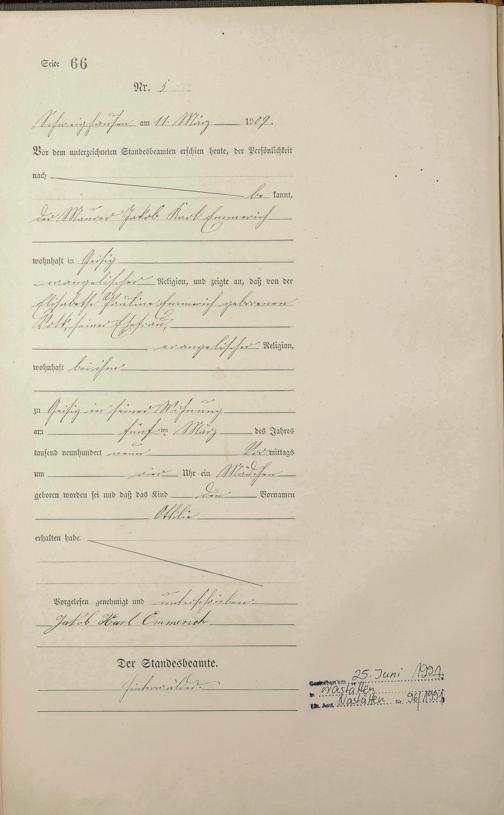 Seite 66
Nr. 5
Schweighausen am 11. März 1909.
Vor dem unterzeichneten Standesbeamten erschien heute, der Persönlichkeit
nach
be kannt,
der Maurer Jakob Karl Emmerich
wohnhaft in Geisig
evangelischer Religion, und zeigte an, daß von der
Elisabethe Pauline Emmerich geborenen
seiner Ehefrau,
evangelischer Religion,
wohnhaft bei ihm
zu Geisig in seiner Wohnung
am fünf ten März des Jahres
tausend neunhundert neun Vor mittags
um vier Uhr ein Mädchen
geboren worden sei und daß das Kind den Vornamen
Ottilie
erhalten habe.
Vorgelesen genehmigt und unterschrieben
Jakob Karl Emmerich
Der Standesbeamte.
Hinterwälder.
Gestorben am 25. Juni 1991
in Nastätten
Sta. Amt Nastätten Nr. 96/1991